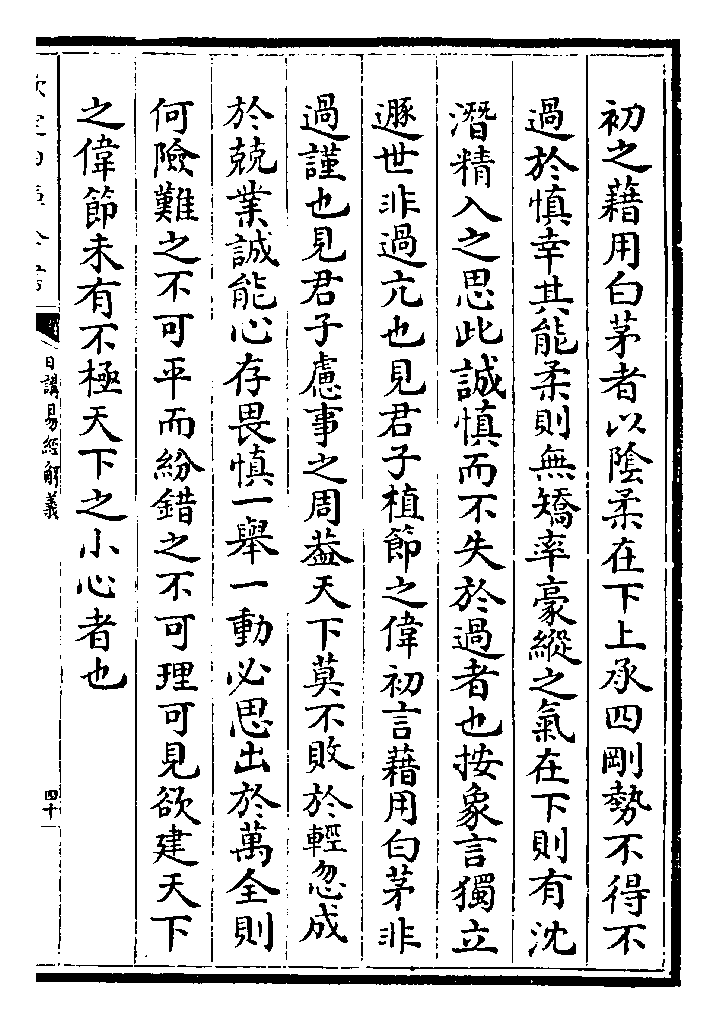 初之藉用白茅者以陰柔在下上承四剛勢不得不
過於慎幸其能柔則無矯率豪縱之氣在下則有沈
潛精入之思此誠慎而不失於過者也按象言獨立
遯世非過亢也見君子植節之偉初言藉用白茅非
過謹也見君子慮事之周葢天下莫不敗於輕忽成
於兢業誠能心存畏慎一舉一動必思出於萬全則
何險難之不可平而紛錯之不可理可見欲建天下
之偉節未有不極天下之小心者也
日講易經解義
四十